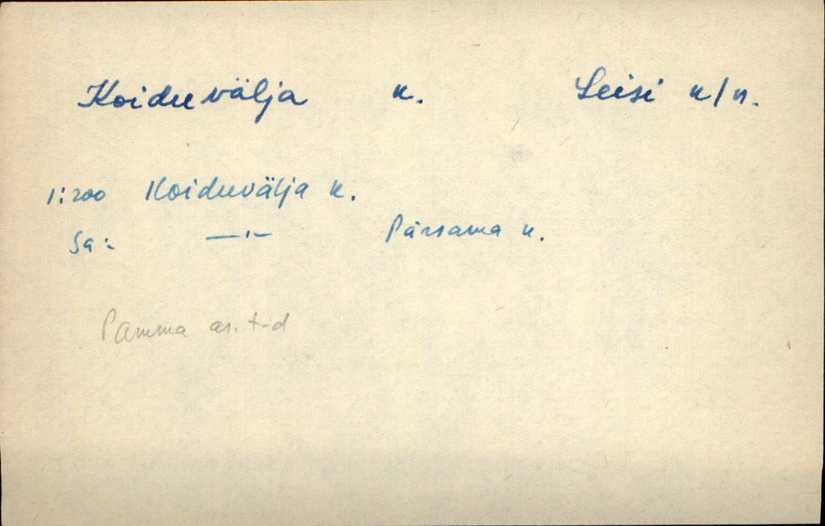 Koiduvälja k. Leisi k/n.
1:200 Koiduvälja k.
Sa: —"— Pärsama k.
Pamma as. t-d